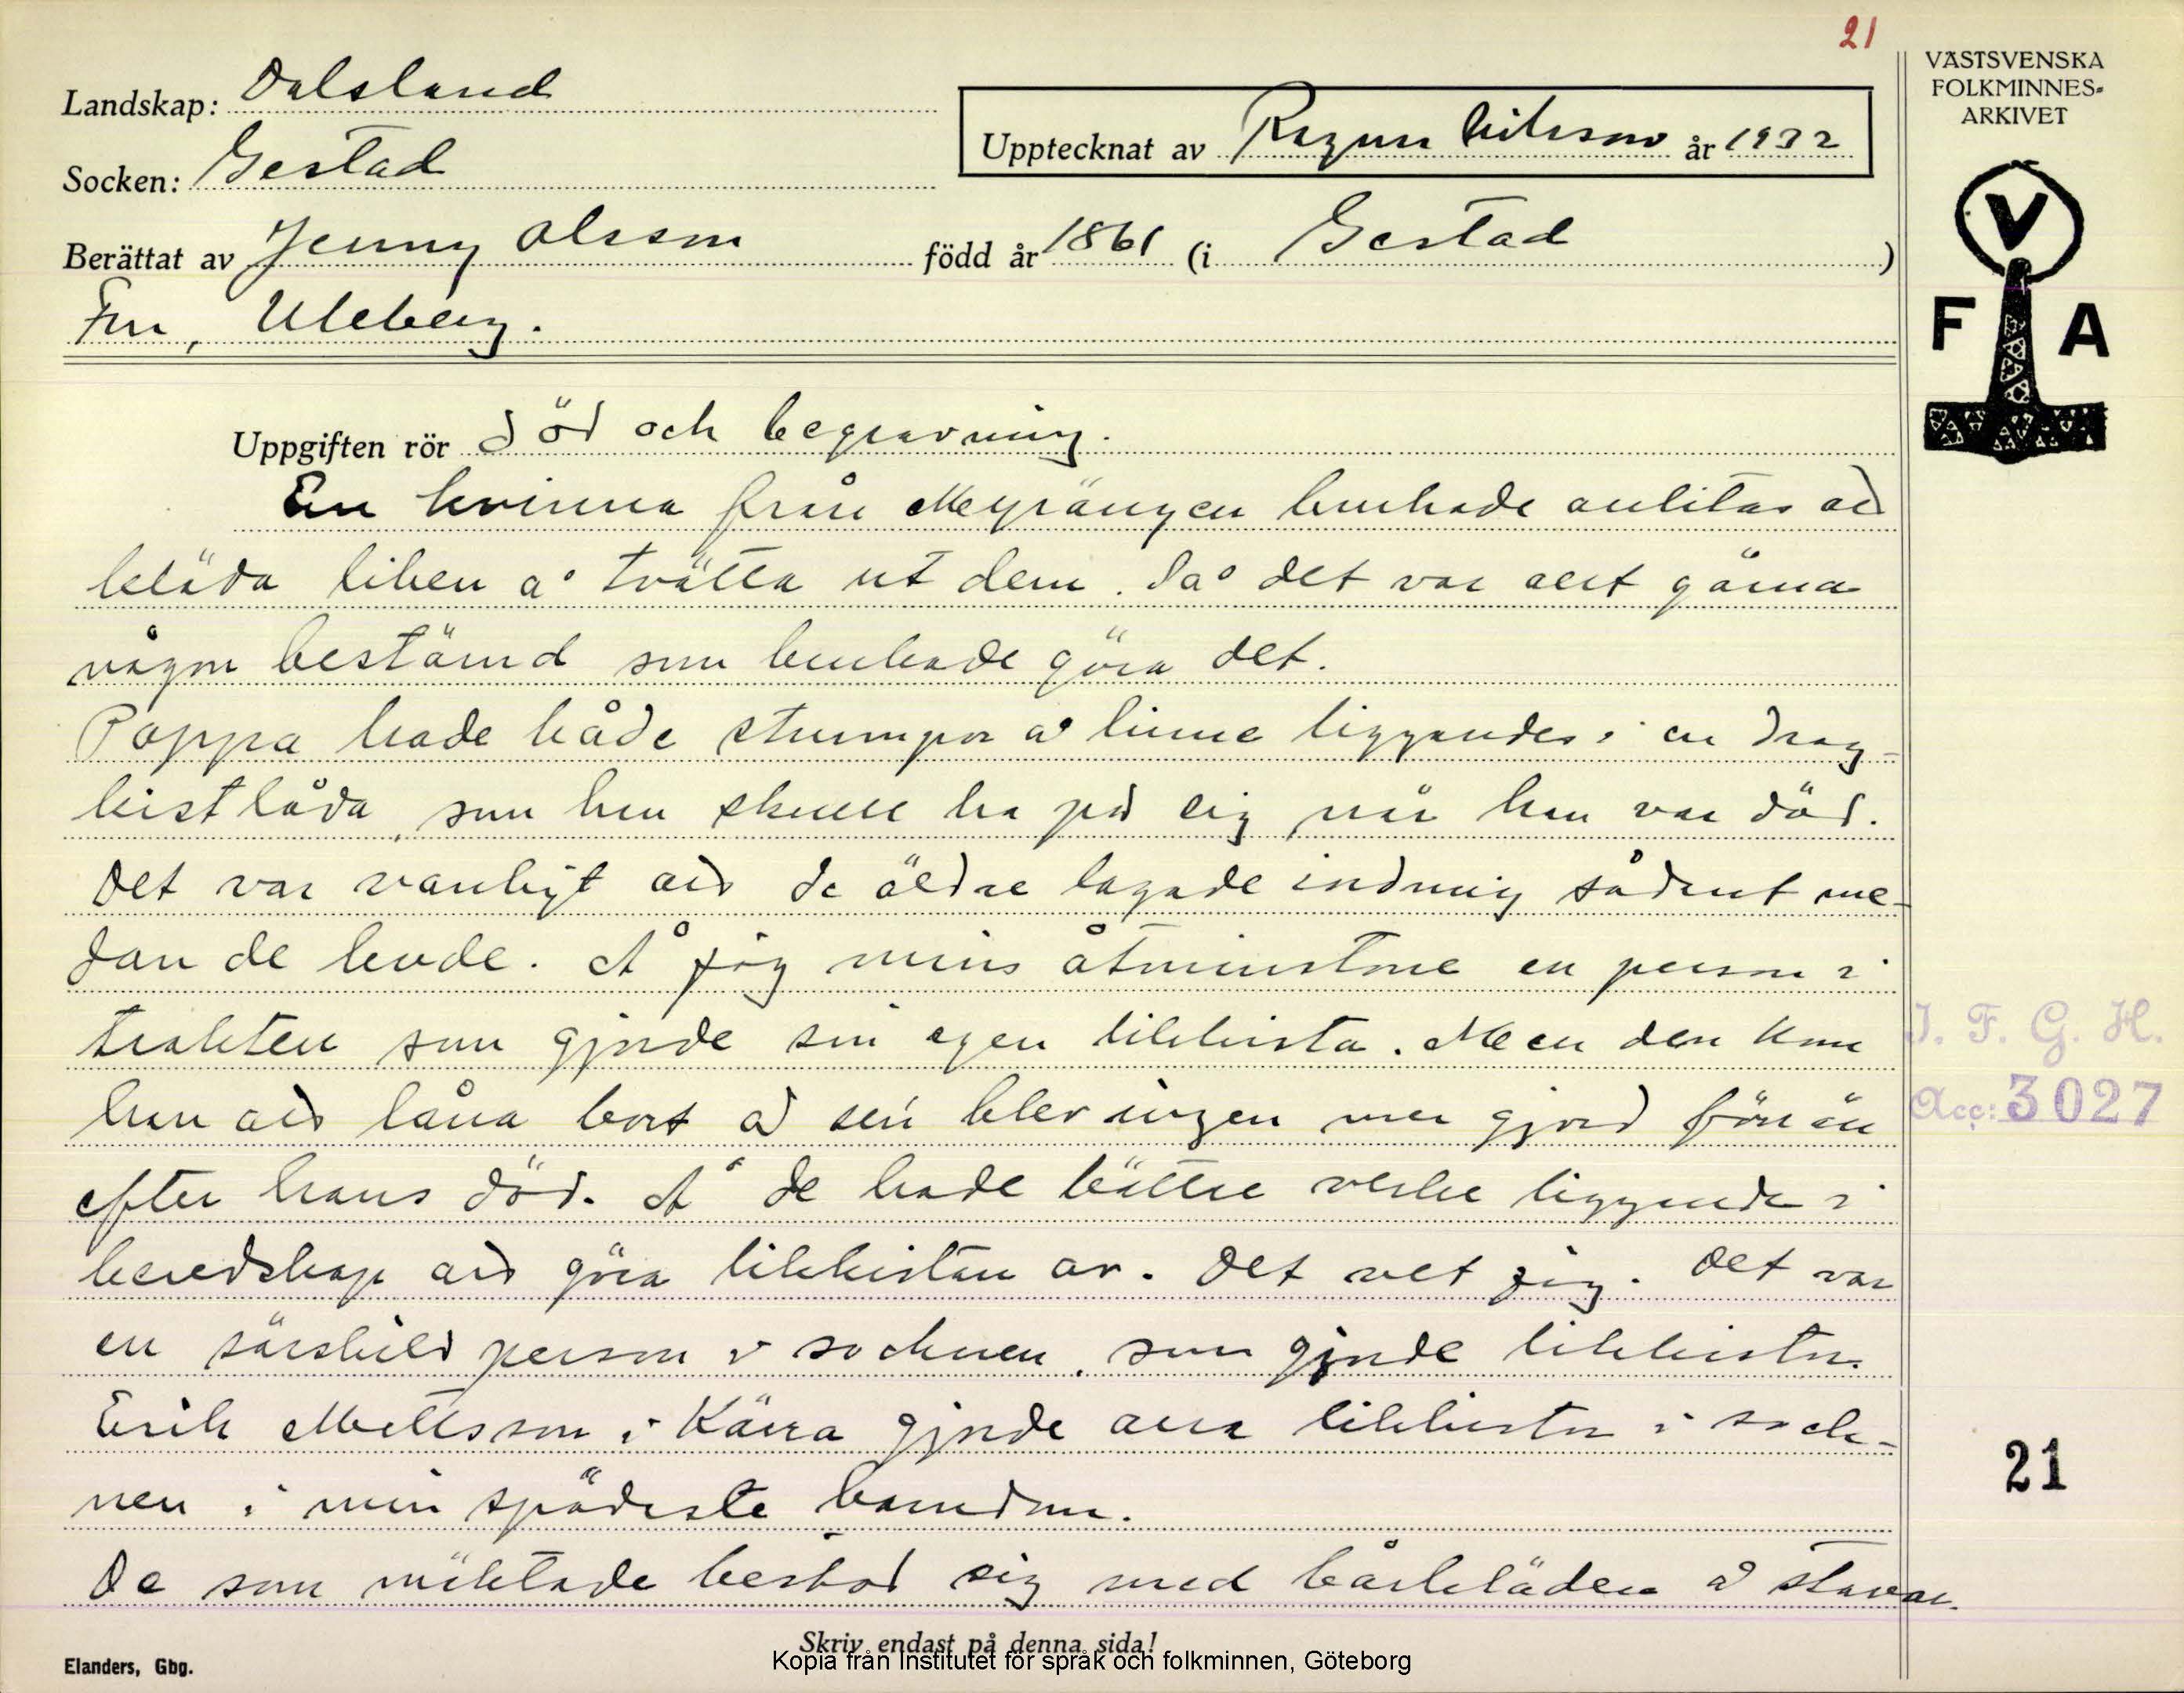 21
VÄSTSVENSKA
FOLKMINNES-
ARKIVET
Landskap: Dalsland
Upptecknat av Ragnar Nilsson år 1932
Socken: Gestad
Berättat av Jenny Olsson född år 1861 (i Gestad)
Fru, Uleberg.
V
F A
Uppgiften rör död och begravning.
En kvinna från brukade anlitas ad
kläda liken å tvätta ut dem. Så det var allt gärna
någon bestämd som brukade göra det.
Pappa hade både strumpor å linne liggandes i en drag-
kistlåda, som han skulle ha på sig när han var död.
Det var vanligt ad de äldre lagade i ordning sådant me-
dan de levde. Å jag mins åtminstone en person i
trakten som gjorde sin egen likkista. Men den kom
han ad låna bort å sen blev ingen mer gjord förrän
efter hans död. Å de hade bättre virke liggande i
beredskap ad göra likkistan av. Det vet jag. Det var
en särskild person i socknen, som gjorde likkistor.
Erik i Kärra gjorde alla likkistor i sock-
nen i min spädeste barndom.
De som mäktade bestod sig med bårkläden å stavar.
I. F. G. H.
Acc: 3027
21
Skriv endast på denna sida!
Kopia från Institutet för språk och folkminnen, Göteborg
Elanders, Gbg.